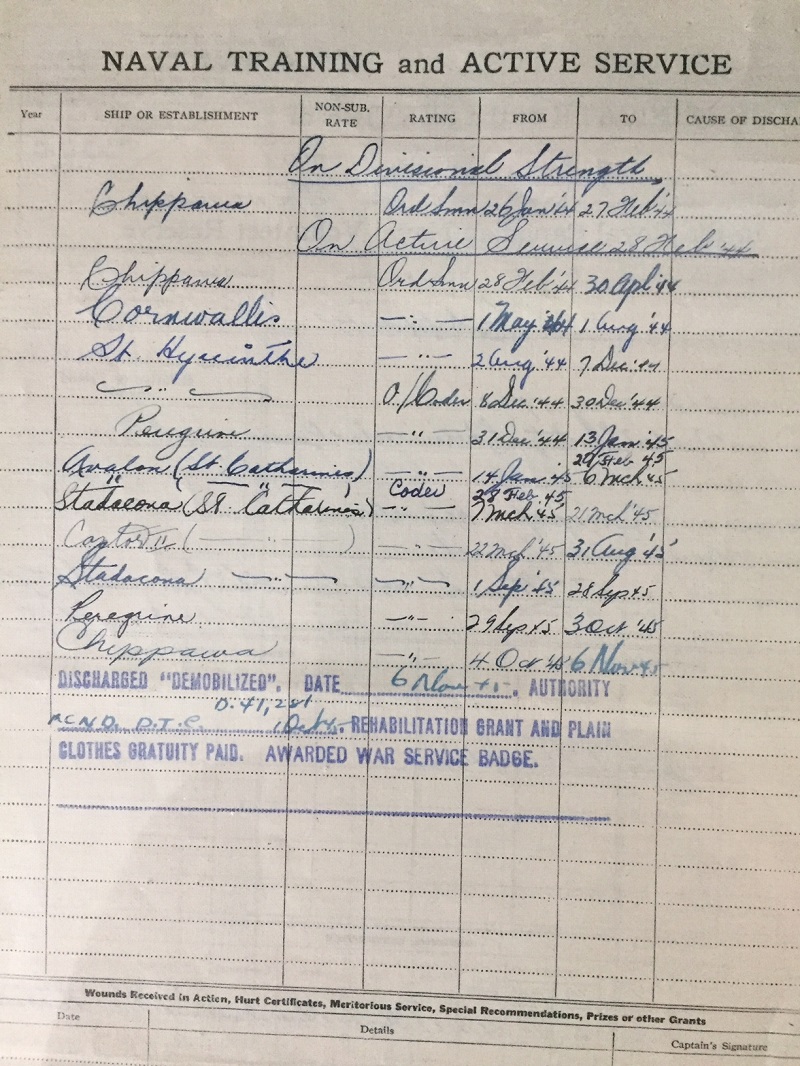 NAVAL TRAINING and ACTIVE SERVICE
Year SHIP OR ESTABLISHMENT NON-SUB. RATE RATING FROM TO CAUSE OF DISCHA
On Divisional Strength
Chippawa Ord Smn 26 Jan '44 27 Feb '44
On Active Service 28 Feb '44
Chippawa Ord Smn 28 Feb '44 30 Apl '44
Cornwallis —"— 1 May '44 1 Aug '44
St. Hycinthe —"— 2 Aug '44 7 Dec '44
—"— O/Coder 8 Dec '44 30 Dec '44
Peregrine —"— 31 Dec '44 13 Jan '45
Avalon (St. Catharines) —"— 14 Jan '45 27 Feb 45
" " Coder 28 Feb 45 6 Mch '45
Stadacona (St. Catharines) —"— 7 Mch '45 21 Mch '45
(—"—) —"— 22 Mch '45 31 Aug '45
Stadacona —"— —"— 1 Sep '45 28 Sep 45
Peregrine —"— 29 Sep 45 3 Oct '45
Chippawa —"— 4 Oct '45 6 Nov 45
DISCHARGED "DEMOBILIZED". DATE 6 Nov 45. AUTHORITY
REHABILITATION GRANT AND PLAIN
CLOTHES GRATUITY PAID. AWARDED WAR SERVICE BADGE.
Wounds Received in Action, Hurt Certificates, Meritorious Service, Special Recommendations, Prizes or other Grants
Date Details Captain's Signature